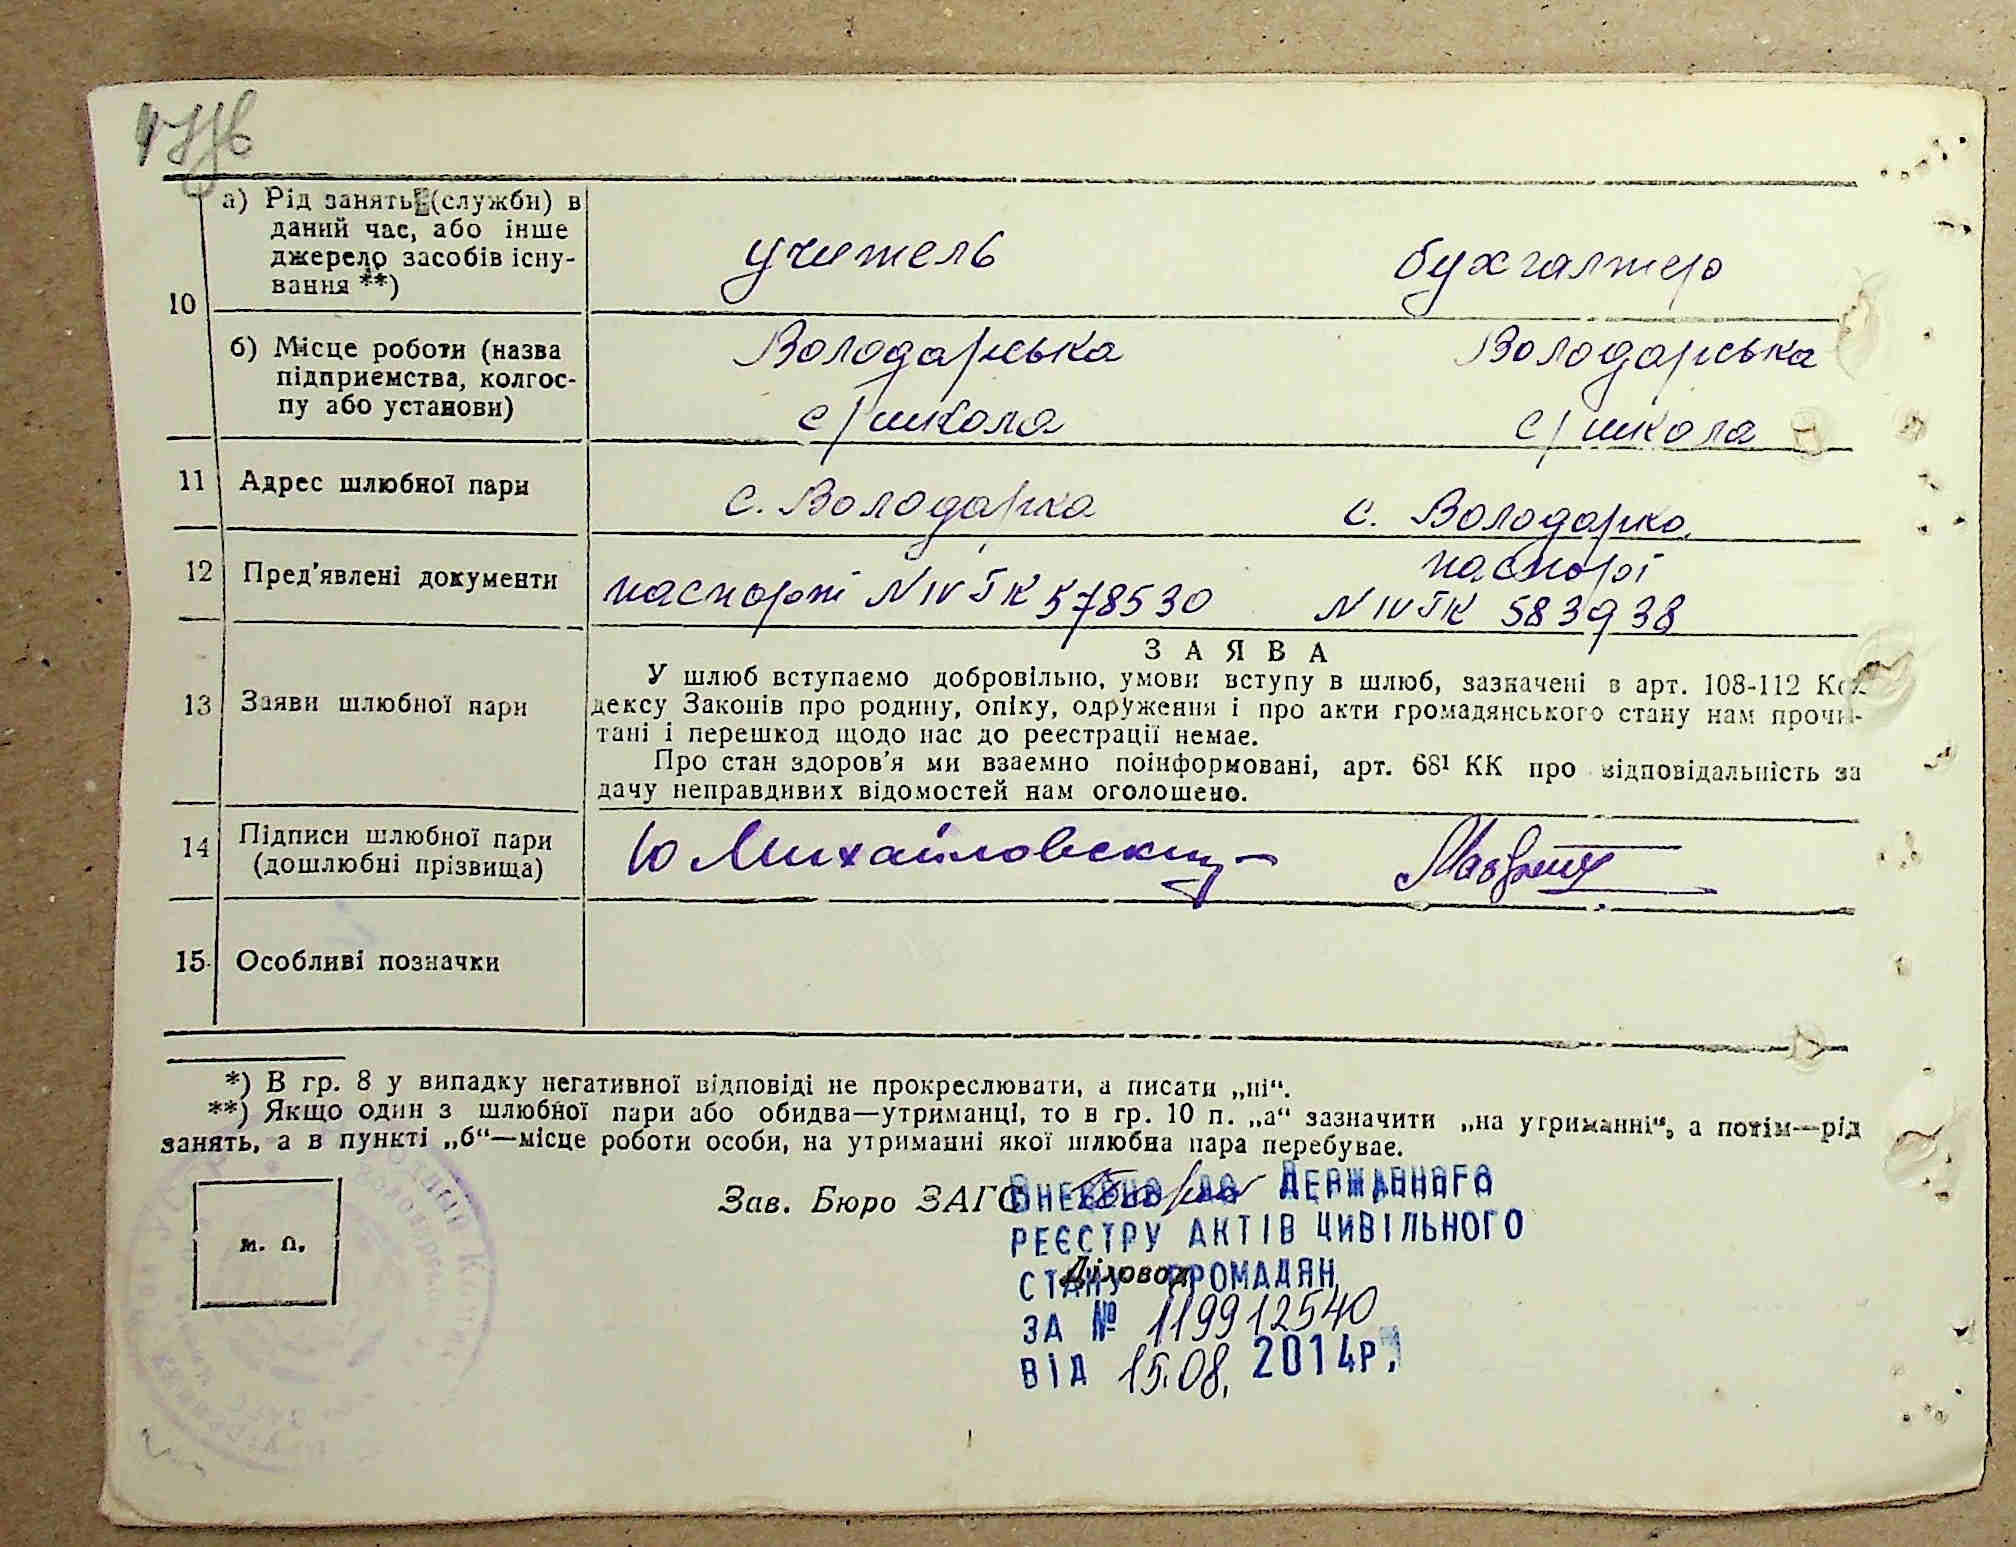 10
а) Рід занять (служби) в
даний час, або інше
джерело засобів існу-
вання **)
учитель
бухгалтер
б) Місце роботи (назва
підприємства, колгос-
пу або установи)
Володарська
Володарська
с/школа
с/школа
11 Адрес шлюбної пари
с. Володарка
с. Володарка
12 Пред'явлені документи
паспорт N IV ТК 578530
паспорт
N IV ТК 583938
13 Заяви шлюбної пари
ЗАЯВА
У шлюб вступаємо добровільно, умови вступу в шлюб, зазначені в арт. 108-112 Ко-
дексу Законів про родину, опіку, одруження і про акти громадянського стану нам прочи-
тані і перешкод щодо нас до реєстрації немає.
Про стан здоров'я ми взаємно поінформовані, арт. 68¹ КК про відповідальність за
дачу неправдивих відомостей нам оголошено.
14 Підписи шлюбної пари
(дошлюбні прізвища)
Ю Михайловский
15 Особливі позначки
*) В гр. 8 у випадку негативної відповіді не прокреслювати, а писати „ні“.
**) Якщо один з шлюбної пари або обидва—утриманці, то в гр. 10 п. „а“ зазначити „на утриманні“, а потім—рід
занять, а в пункті „б“—місце роботи особи, на утриманні якої шлюбна пара перебуває.
м. п.
Зав. Бюро ЗАГС
Діловод
ВНЕСЕНО ДО ДЕРЖАВНОГО
РЕЄСТРУ АКТІВ ЦИВІЛЬНОГО
СТАНУ ГРОМАДЯН
ЗА № 119912540
ВІД 15.08. 2014р.